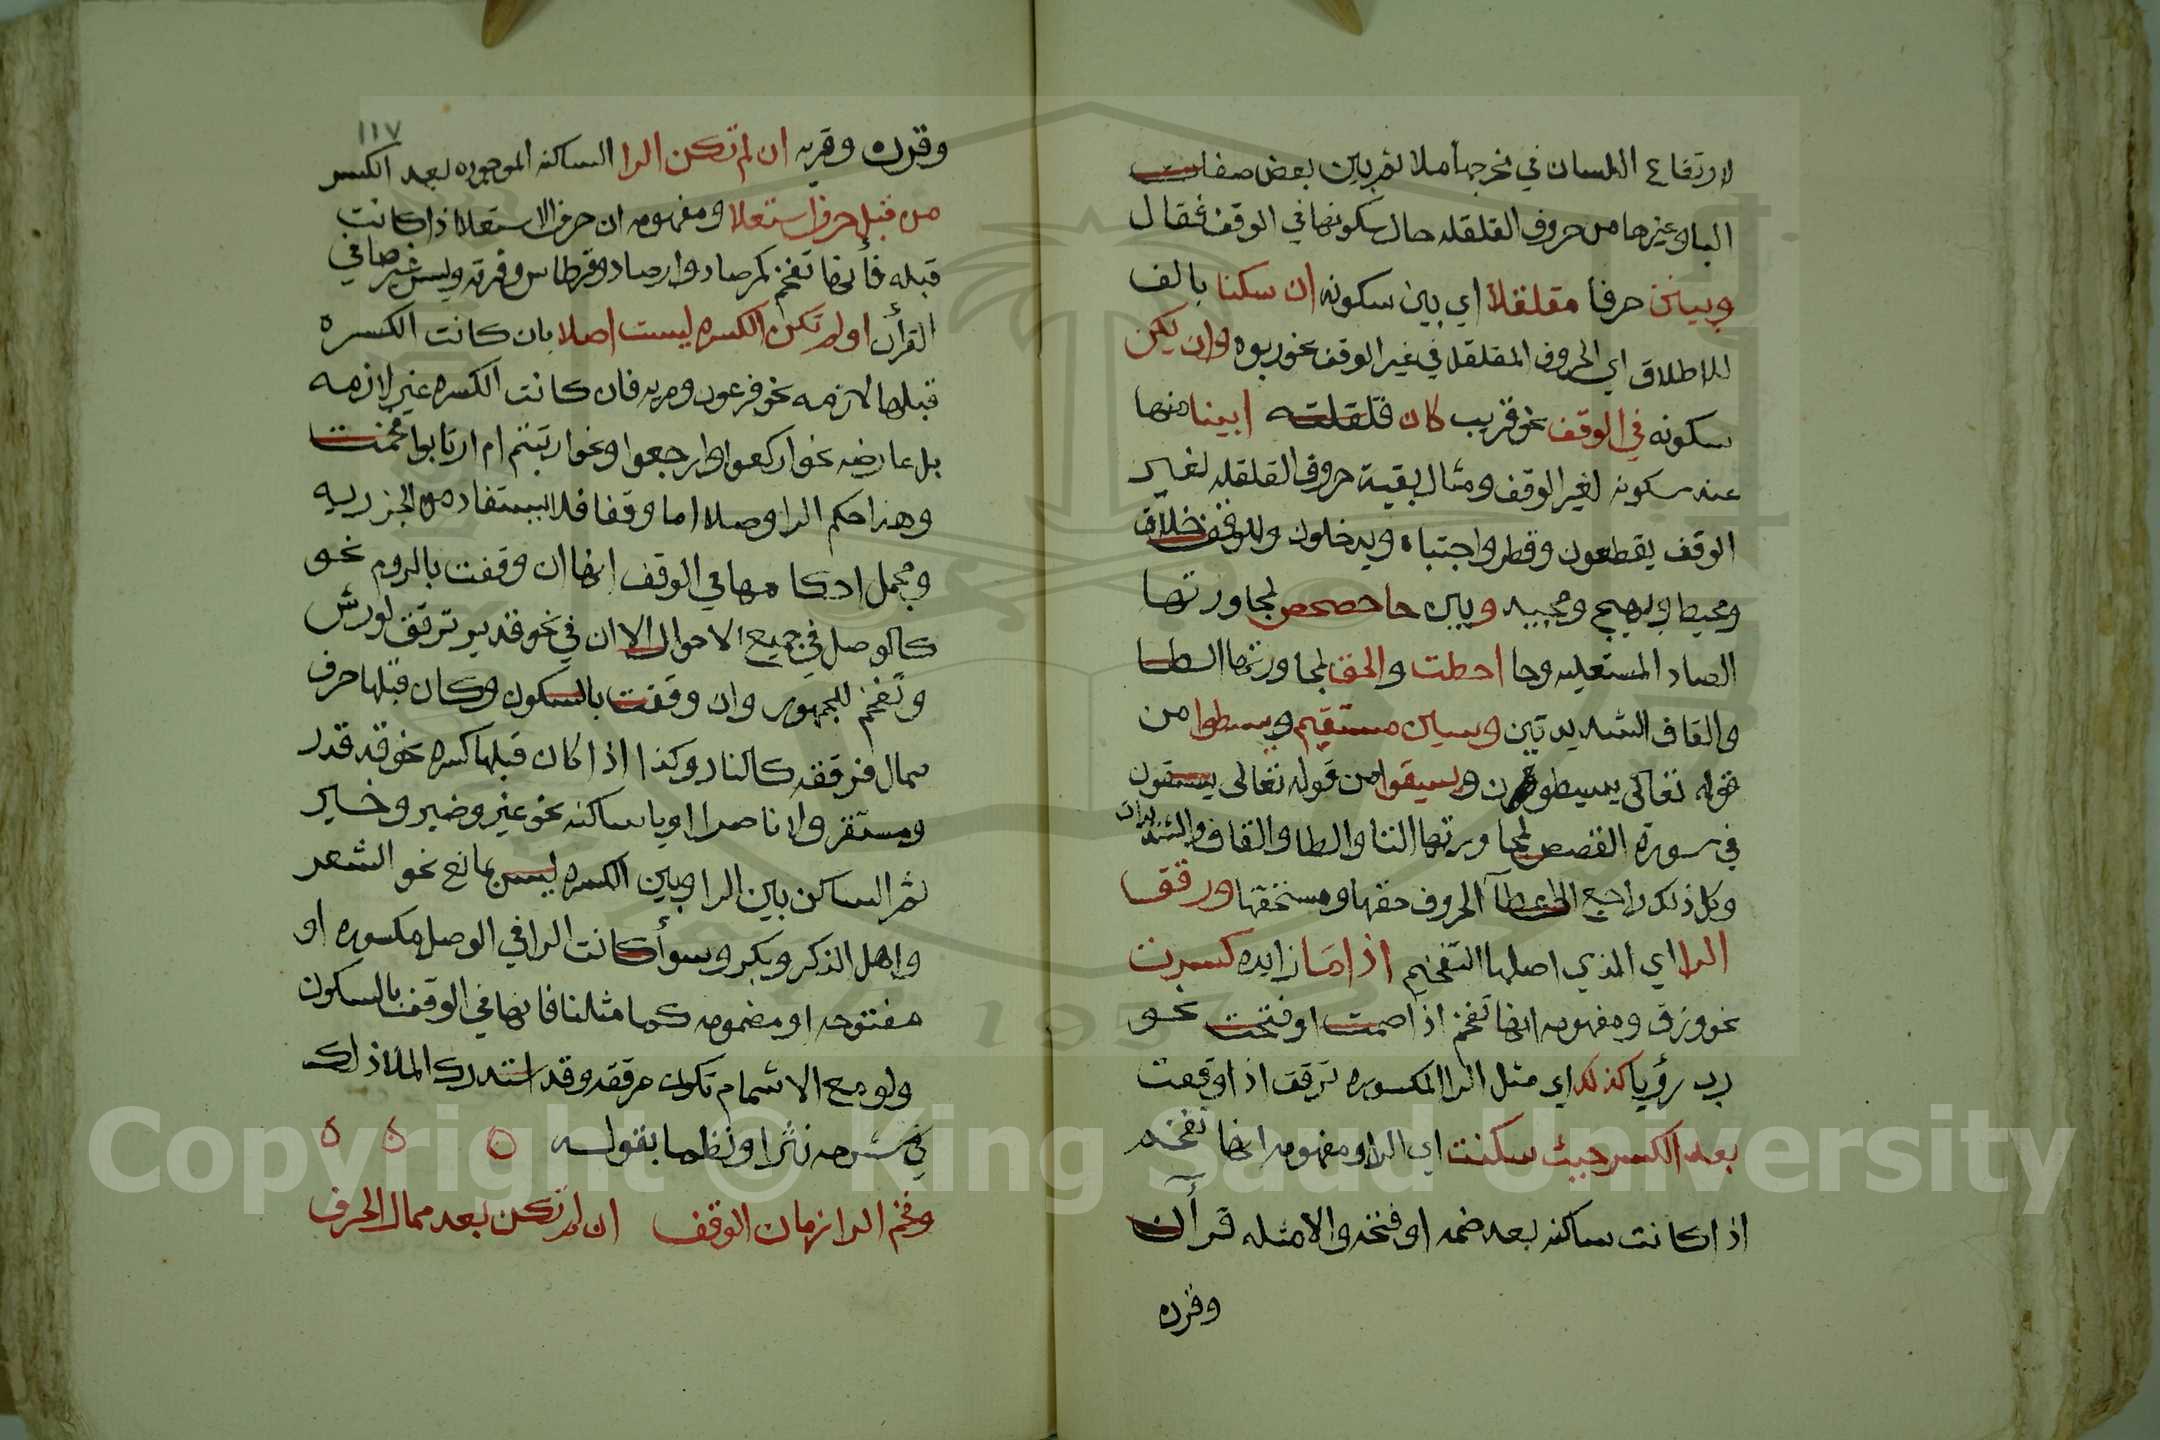 لارتفاع اللسان في مخرجها ملا ثم بين بعض صفات
البا وغيرها من حروف القلقله حال سكونها في الوقف فقال
وبينن حرفا مقلقلا اي بين سكونه ان سكنا بالف
للاطلاق اي الحروف المقلقله في غير الوقف نحو ربوه وان يكن
سكونه في الوقف نحو قريب كان قلقلته ابينا منها
عند سكونه لغير الوقف ومثال بقية حروف القلقله لغير
الوقف يقطعون وقطر واجتباه ويدخلون وللوقف خلاق
ومحيط وبهيج ومجيد وبين حا حصحص لمجاورتها
الصاد المستعليه وحا احطت والحق لمجاورتها الطا
والقاف الشديدتين وسين مستقيم ويسطوا من
قوله تعالى يسطون ويسقوا من قوله تعالى يسقون
في سورة القصص لمجاورتها التا والطا والقاف والشديدات
وكل ذلك راجع الحروف حقها ومستحقها ورقق
الرا اي الذي اصلها التفخيم اذا ما زايده كسرت
نحو رزق ومفهومه انها تفخم اذا ضمت او فتحت نحو
رب رؤيا كذلك اي مثل الرا المكسوره ترقق اذا وقعت
بعد الكسر حيث سكنت اي الرا ومفهومه انها تفخم
اذا كانت ساكنه بعد ضمه او فتحه والامثله قرآن
وقرن
١١٧
وقرن وقريه ان لم تكن الرا الساكنه الموجوده بعد الكسر
من قبل حرف استعلا ومفهومه ان حرف الاستعلا اذا كانت
قبله فأنها تفخم كمرصاد وارصاد وقرطاس وفرقه وليس غيرها في
القرأن او لم تكن الكسره ليست اصلا بان كانت الكسره
قبلها لازمه نحو فرعون ومريه فان كانت الكسره غير لازمه
بل عارضه نحو اركعوا وارجعوا ونحو اربتم ام ارتابوا فخمت
وهذا حكم الرا وصلا اما وقفا فلا يستفاد من الجزريه
ومجمل احكامها في الوقف انها ان وقفت بالروم نحو
كالوصل في جميع الاحوال الا ان في نحو قدير ترقق لورش
وتفخم للجمهور وان وقفت بالسكون وكان قبلها حرف
ممال فرققه كالنار وكذا اذا كان قبلها كسره نحو قد قدر
ومستقر ولا ناصرا او يا ساكنه نحو غير وضير وخير
ثم الساكن بين الرا وبين الكسره ليس بمانع نحو الشعر
واهل الذكر وبكر وسوأ كانت الرا في الوصل مكسوره او
مفتوحه او مضمومه كما مثلنا فانها في الوقف بالسكون
ولو مع الاشمام تكون مرققه وقد استدرك الملا ذلك
في شرحه نثرا ونظما بقوله ٥ ٥ ٥
وفخم الرا زمان الوقف ان لم تكن بعد ممال الحرف
Copyright © King Saud University
1957